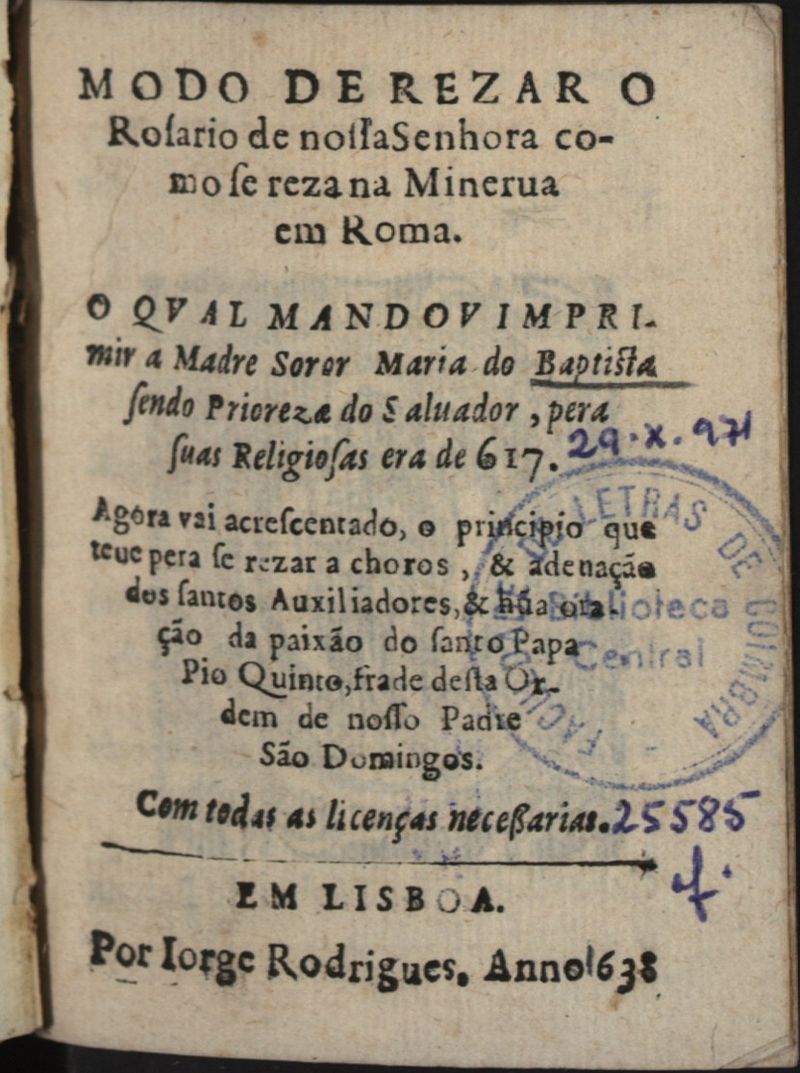 MODO DE REZAR O
Roſario de noſſa Senhora co-
mo ſe reza na Minerua
em Roma.
O QVAL MANDOV IMPRI-
mir a Madre Soror Maria do Baptiſta
ſendo Prioreza do Saluador, pera
ſuas Religioſas era de 617.
29.X.971
Agora vai acreſcentado, o principio que
teue pera ſe rezar a choros, & adenação
dos ſantos Auxiliadores, & hũa ora-
ção da paixão do ſanto Papa
Pio Quinto, frade deſta Or-
dem de noſſo Padre
São Domingos.
Com todas as licenças neceßarias.
25585
EM LISBOA.
Por Iorge Rodrigues. Anno 1638
DE LETRAS DE COIMBRA
Biblioteca
Central